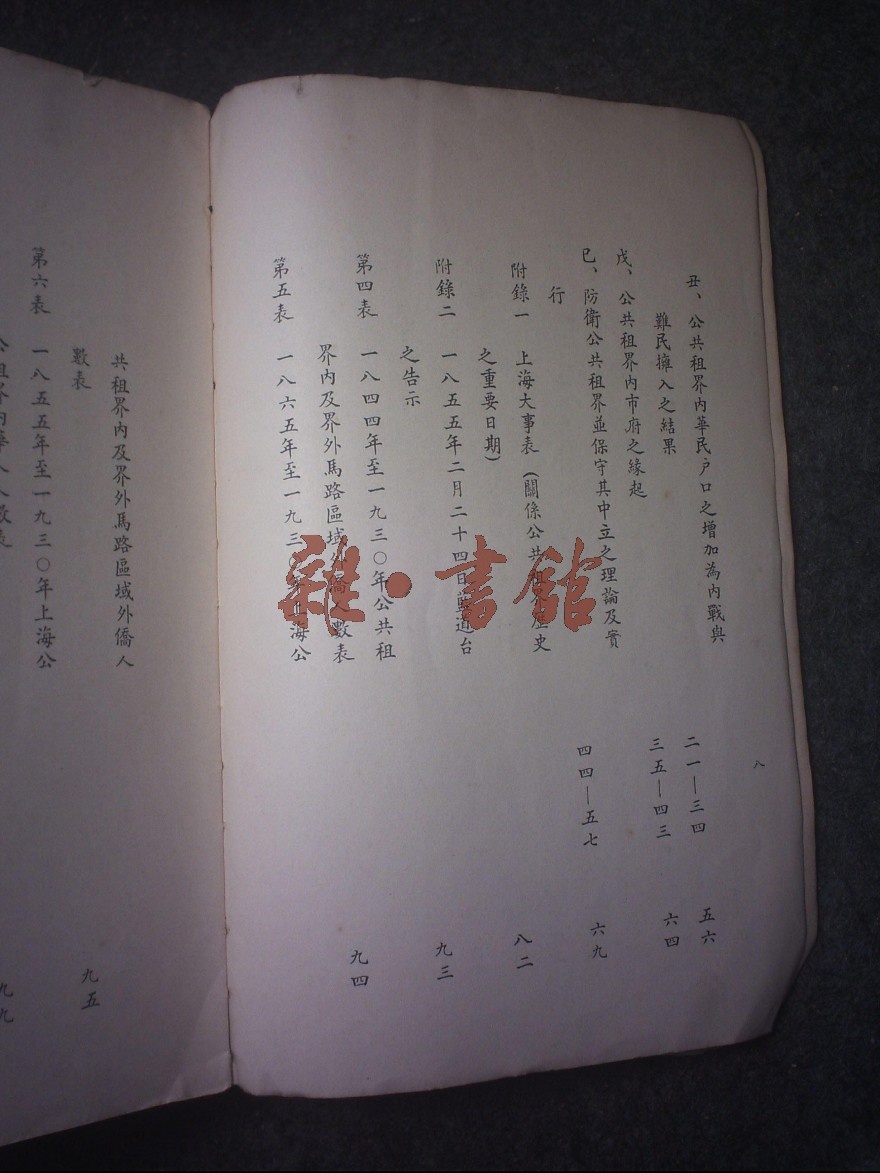 八
丑、公共租界內華民戶口之增加為內戰與
難民擁入之結果 二一—三四 五六
戊、公共租界內市府之緣起 三五—四三 六四
巳、防衛公共租界並保守其中立之理論及實
行 四四—五七 六九
附錄一 上海大事表（關係公共租界歷史
之重要日期） 八二
附錄二 一八五五年二月二十四日藍道台
之告示 九三
第四表 一八四四年至一九三〇年公共租
界內及界外馬路區域外僑人數表 九四
第五表 一八六五年至一九三〇年上海公
共租界內及界外馬路區域外僑人
數表 九五
第六表 一八五五年至一九三〇年上海公
共租界內華人人數表 九九
雜·書館